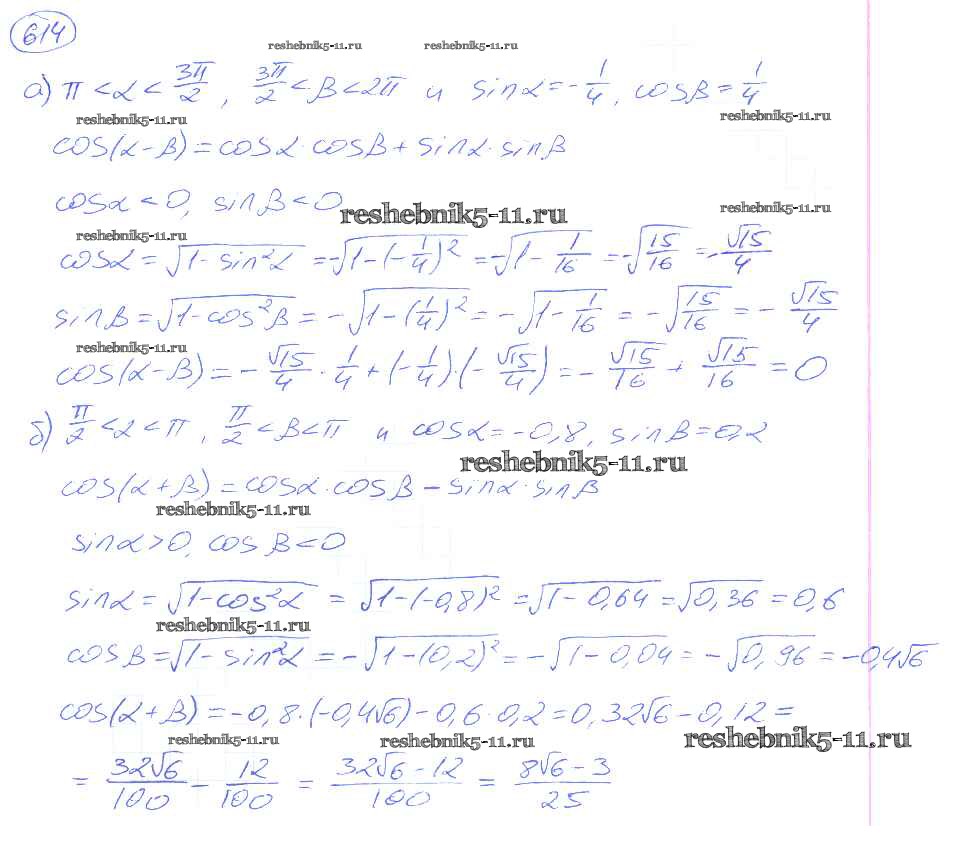 614
reshebnik5-11.ru reshebnik5-11.ru
а) π < α < 3π/2, 3π/2 < β < 2π и sinα = -1/4, cosβ = 1/4
reshebnik5-11.ru reshebnik5-11.ru
cos(α-β) = cosα·cosβ + sinα·sinβ
cosα < 0, sinβ < 0
reshebnik5-11.ru reshebnik5-11.ru
reshebnik5-11.ru
cosα = √(1-sin²α) = -√(1-(-1/4)²) = -√(1-1/16) = -√(15/16) = -√15/4
sinβ = √(1-cos²β) = -√(1-(1/4)²) = -√(1-1/16) = -√(15/16) = -√15/4
reshebnik5-11.ru
cos(α-β) = -√15/4 · 1/4 + (-1/4)·(-√15/4) = -√15/16 + √15/16 = 0
б) π/2 < α < π, π/2 < β < π и cosα = -0,8, sinβ = 0,2
reshebnik5-11.ru
cos(α+β) = cosα·cosβ - sinα·sinβ
reshebnik5-11.ru
sinα > 0, cosβ < 0
sinα = √(1-cos²α) = √(1-(-0,8)²) = √(1-0,64) = √0,36 = 0,6
reshebnik5-11.ru
cosβ = √(1-sin²α) = -√(1-(0,2)²) = -√(1-0,04) = -√0,96 = -0,4√6
cos(α+β) = -0,8·(-0,4√6) - 0,6·0,2 = 0,32√6 - 0,12 =
reshebnik5-11.ru reshebnik5-11.ru reshebnik5-11.ru
= 32√6/100 - 12/100 = (32√6 - 12)/100 = (8√6 - 3)/25